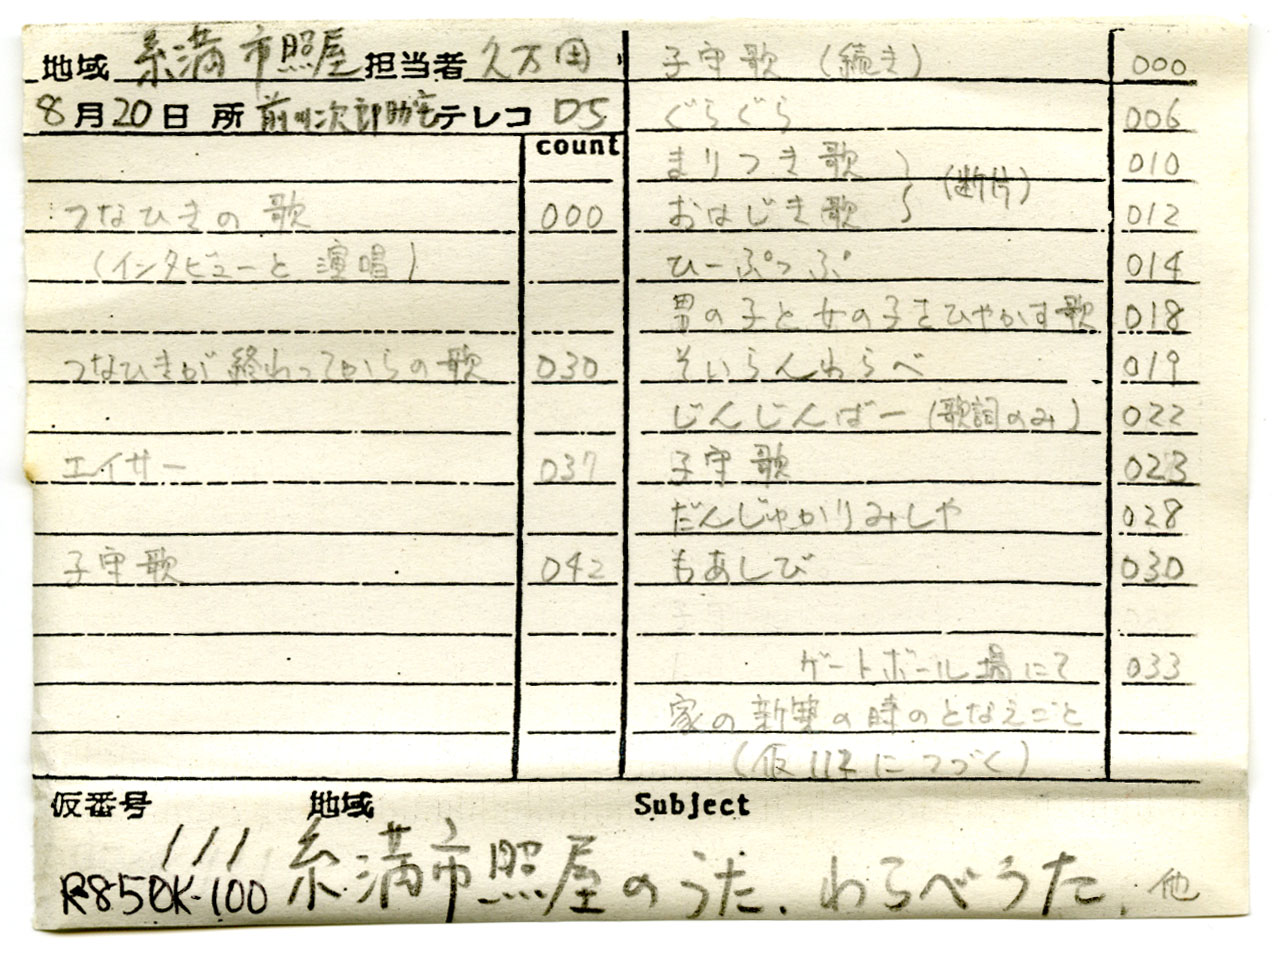 地域 糸満市照屋 担当者 久万田
8月20日 所 前川次郎助宅 テレコ D5
count
つなひきの歌 000
(インタビューと演唱)
つなひきが終わってからの歌 030
エイサー 037
子守歌 042
子守歌 (続き) 000
ぐらぐら 006
まりつき歌 010
(断片)
おはじき歌 012
ひーぷっぷ 014
男の子と女の子をひやかす歌 018
そいらんわらべ 019
じんじんばー (歌詞のみ) 022
子守歌 023
だんじゅかりみしや 028
もあしび 030
ゲートボール場にて 033
家の新築の時のとなえごと
(仮112につづく)
仮番号 地域 Subject
111 糸満市照屋のうた、わらべうた、他
R850K-100